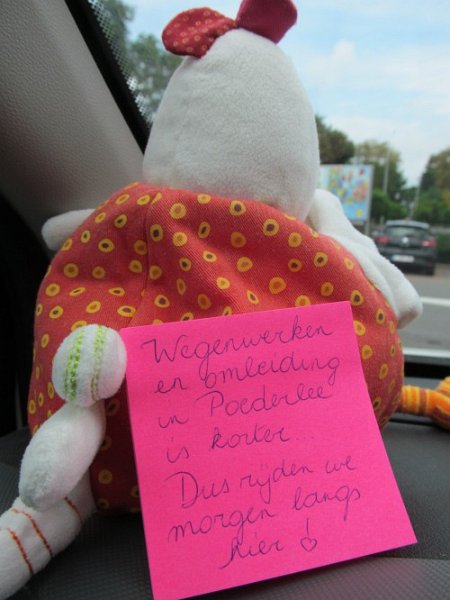 Wegenwerken
en omleiding
in Poederlee
is korter...
Dus rijden we
morgen langs
hier ♡